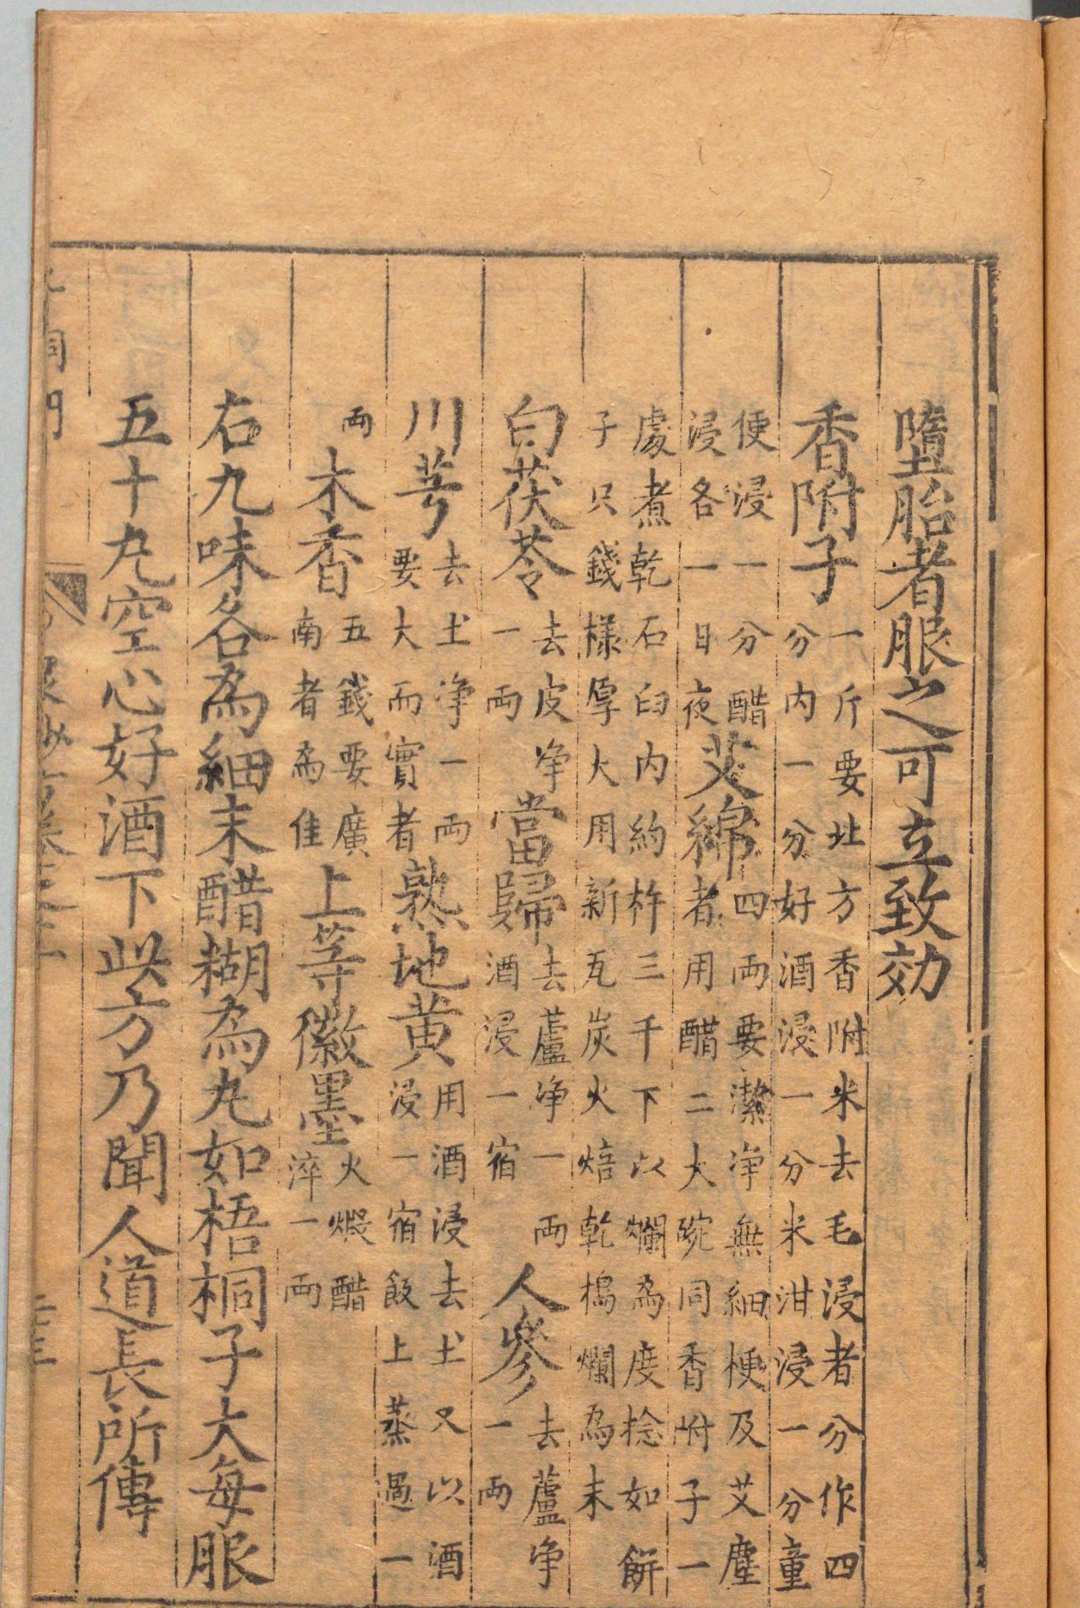 墮胎者服之可立致効
香附子一斤要北方香附米去毛浸者分作四
分内一分好酒浸一分米泔浸一分童
便浸一分醋
浸各一日夜艾綿四兩要潔净無細梗及艾塵
者用醋二大碗同香附子一
處煮乾石臼内約杵三千下以爛為度捻如餅
子只錢様厚大用新瓦炭火焙乾搗爛為末
白茯苓去皮净
一兩當歸去蘆净一兩
酒浸一宿人參去蘆净
一兩
川芎去土净一兩
要大而實者熟地黄用酒浸去土又以酒
浸一宿飯上蒸過一
兩木香五錢要廣
南者為佳上等徽墨火煆醋
淬一兩
右九味各為細末醋糊為丸如梧桐子大每服
五十丸空心好酒下此方乃聞人道長所傳